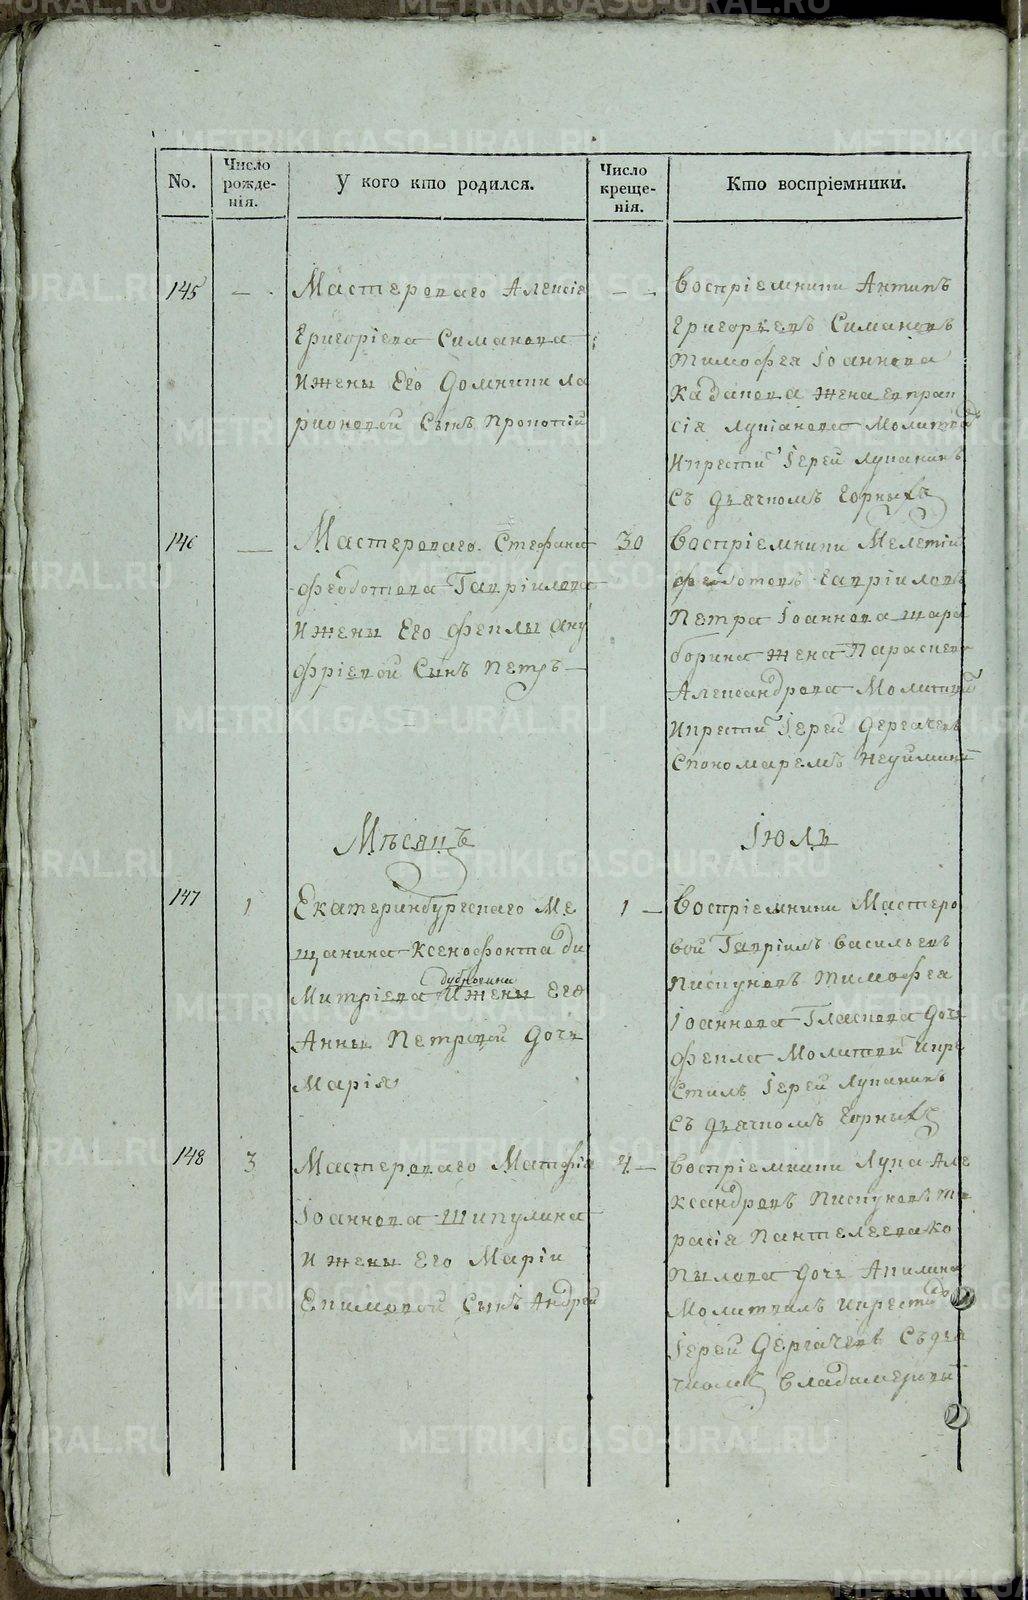 No.
Число рожде- нія.
У кого кто родился.
Число креще- нія.
Кто воспріемники.
145 — Мастероваго Алексія
Григоріева Симанова
И жены Его Домники ла
ріоновой Сынъ Прокопій
— Воспріемники Антипъ
Григорьевъ Симановъ
Тимофея Іоаннова
Кадапова жена евпрак
сія Лукіанова Молитвов
И крести Іерей Лупанинъ
Съ дьячкомъ Горныхъ
146 — Мастероваго Стефана
Федотова Гавріилова
И жены Его Феклы ану
фріевой Сынъ Петръ
30 Воспріемники Мелетій
Федотовъ Гавріиловъ
Петра Іоаннова шара
борина жена Параскева
Александрова Молитвой
И крести Іерей Дергачевъ
Спономаремъ
Мѣсяцъ Іюль
147 1 Екатеринбургскаго Ме
щанина Ксенофонта ди
Дубровина
Митріева И жены Его
Анны Петровой Дочь
Марія
1 — Воспріемники Мастеро
вой Гавріилъ васильевъ
Пискуновъ Тимофея
Іоаннова Гласкова Дочь
Фекла Молитвой и кре
Стилъ Іерей Лупанинъ
Съ дьячкомъ Горныхъ
148 3 Мастероваго Матфія
Іоаннова Шипулина
И жены Его Маріи
Екимовой Сынъ Андрей
4 — Воспріемники Лука Але
ксандровъ Пискуновъ та
расія Пантелеева ко
пылова Дочь Акилина
Молитвилъ и крести
Іерей Дергачевъ Съ дья
чкомъ Владимеровы